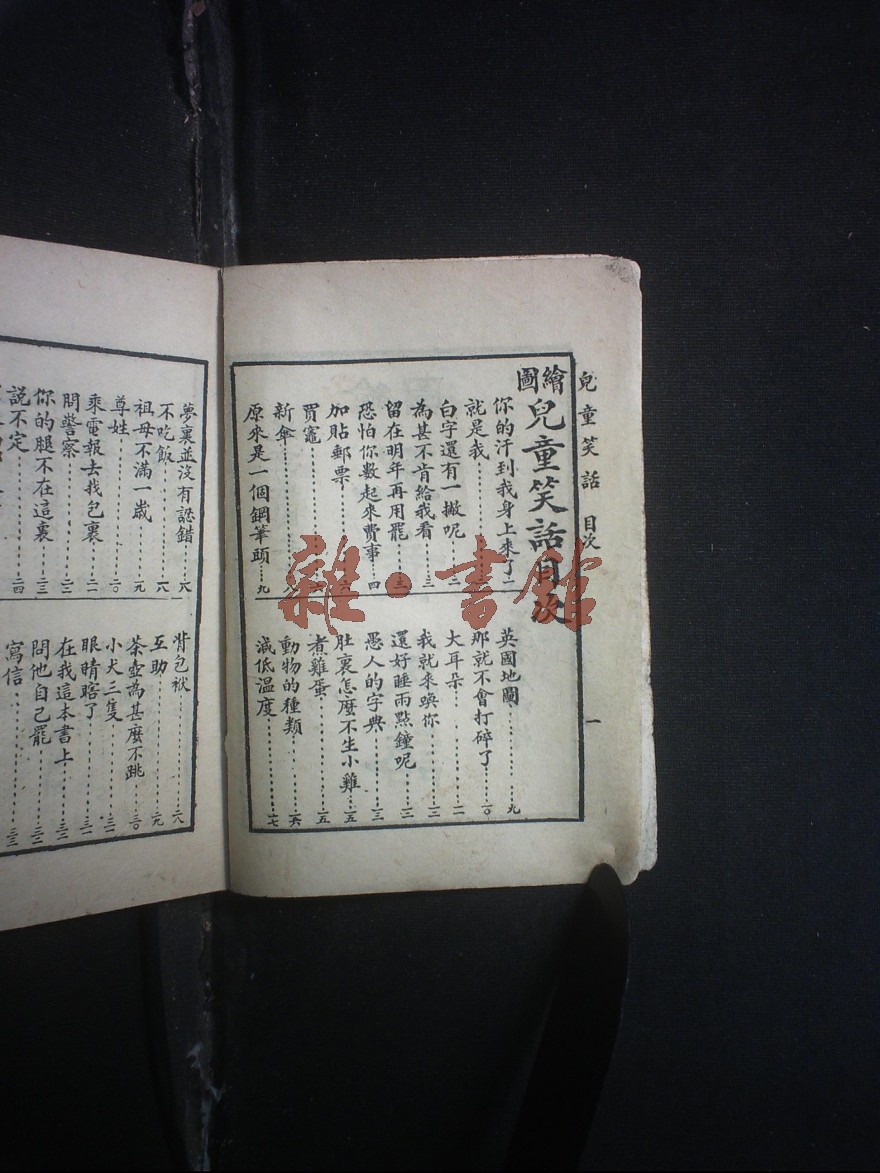 兒童笑話 目次 一
繪圖 兒童笑話目次
你的汗到我身上來了…一
就是我
白字還有一撇呢…二
為甚不肯給我看…三
留在明年再用罷…三
恐怕你數起來費事…四
加貼郵票…六
賈竈
新傘…八
原來是一個鋼筆頭…九
英國地圖…九
那就不會打碎了…一〇
大耳朵…一一
我就來喚你…一二
還好睡兩點鐘呢…一二
愚人的字典…一三
肚裏怎麼不生小雞…一五
煮雞蛋…一五
動物的種類…一六
減低溫度…一七
夢裏並沒有認錯…一八
不吃飯…一八
祖母不滿一歲…一九
尊姓…二〇
乘電報去找包裹…二一
問警察…二三
你的腿不在這裏…二三
說不定…二四
背包袱…二八
互助…二九
茶壺為甚麼不跳…三〇
小犬三隻…三一
眼睛瞎了…三一
在我這本書上…三二
問他自己罷…三二
寫信…三三
雜·書館